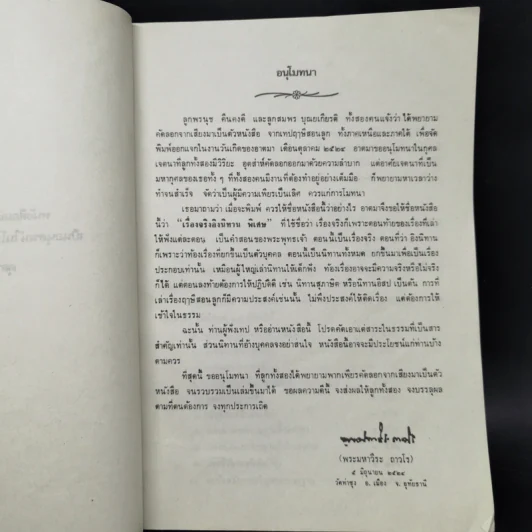 อนุโมทนา
ลูกพรนุช คืนคงดี และลูกสมพร บุณยเกียรติ ทั้งสองคนแจ้งว่า ได้พยายาม
คัดลอกจากเสียงมาเป็นตัวหนังสือ จากเทปฤาษีสอนลูก ทั้งภาคเหนือและภาคใต้ เพื่อจัด
พิมพ์ออกแจกในงานวันเกิดของอาตมา เดือนตุลาคม ๒๕๒๔ อาตมาขออนุโมทนาในกุศล
เจตนาที่ลูกทั้งสองมีวิริยะ อุตส่าห์คัดลอกออกมาด้วยความลำบาก แต่อาศัยเจตนาที่เป็น
มหากุศลของเธอทั้ง ๆ ที่ทั้งสองคนมีงานที่ต้องทำอยู่อย่างเต็มมือ ก็พยายามหาเวลาว่าง
ทำจนสำเร็จ จัดว่าเป็นผู้มีความเพียรเป็นเลิศ ควรแก่การโมทนา
เธอมาถามว่า เมื่อจะพิมพ์ ควรให้ชื่อหนังสือนี้ว่าอย่างไร อาตมาจึงขอให้ชื่อหนังสือ
นี้ว่า "เรื่องจริงอิงนิทาน พิเศษ" ที่ใช้ชื่อว่า เรื่องจริงก็เพราะตอนท้ายของเรื่องที่เล่า
ให้ฟังแต่ละตอน เป็นคำสอนของพระพุทธเจ้า ตอนนี้เป็นเรื่องจริง ตอนที่ว่า อิงนิทาน
ก็เพราะว่าท้องเรื่องที่ยกขึ้นเป็นตัวบุคคล ตอนนี้เป็นนิทานทั้งหมด ยกขึ้นมาเพื่อเป็นเรื่อง
ประกอบเท่านั้น เหมือนผู้ใหญ่เล่านิทานให้เด็กฟัง ท้องเรื่องอาจจะมีความจริงหรือไม่จริง
ก็ได้ แต่ตอนลงท้ายต้องการให้ปฏิบัติดี เช่น นิทานสุภาษิต หรือนิทานอีสป เป็นต้น การที่
เล่าเรื่องฤาษีสอนลูกก็มีความประสงค์เช่นนั้น ไม่พึงประสงค์ให้ติดเรื่อง แต่ต้องการให้
เข้าใจในธรรม
ฉะนั้น ท่านผู้ฟังเทป หรืออ่านหนังสือนี้ โปรดคัดเอาแต่สาระในธรรมที่เป็นสาร
สำคัญเท่านั้น ส่วนนิทานที่อ้างบุคคลจงอย่าสนใจ หนังสือนี้อาจจะมีประโยชน์แก่ท่านบ้าง
ตามควร
ที่สุดนี้ ขออนุโมทนา ที่ลูกทั้งสองได้พยายามพากเพียรคัดลอกจากเสียงมาเป็นตัว
หนังสือ จนรวบรวมเป็นเล่มขึ้นมาได้ ขอผลความดีนี้ จงส่งผลให้ลูกทั้งสอง จงบรรลุผล
ตามที่ตนต้องการ จงทุกประการเถิด
(พระมหาวีระ ถาวโร)
๕ มิถุนายน ๒๕๒๔
วัดท่าซุง อ. เมือง จ. อุทัยธานี